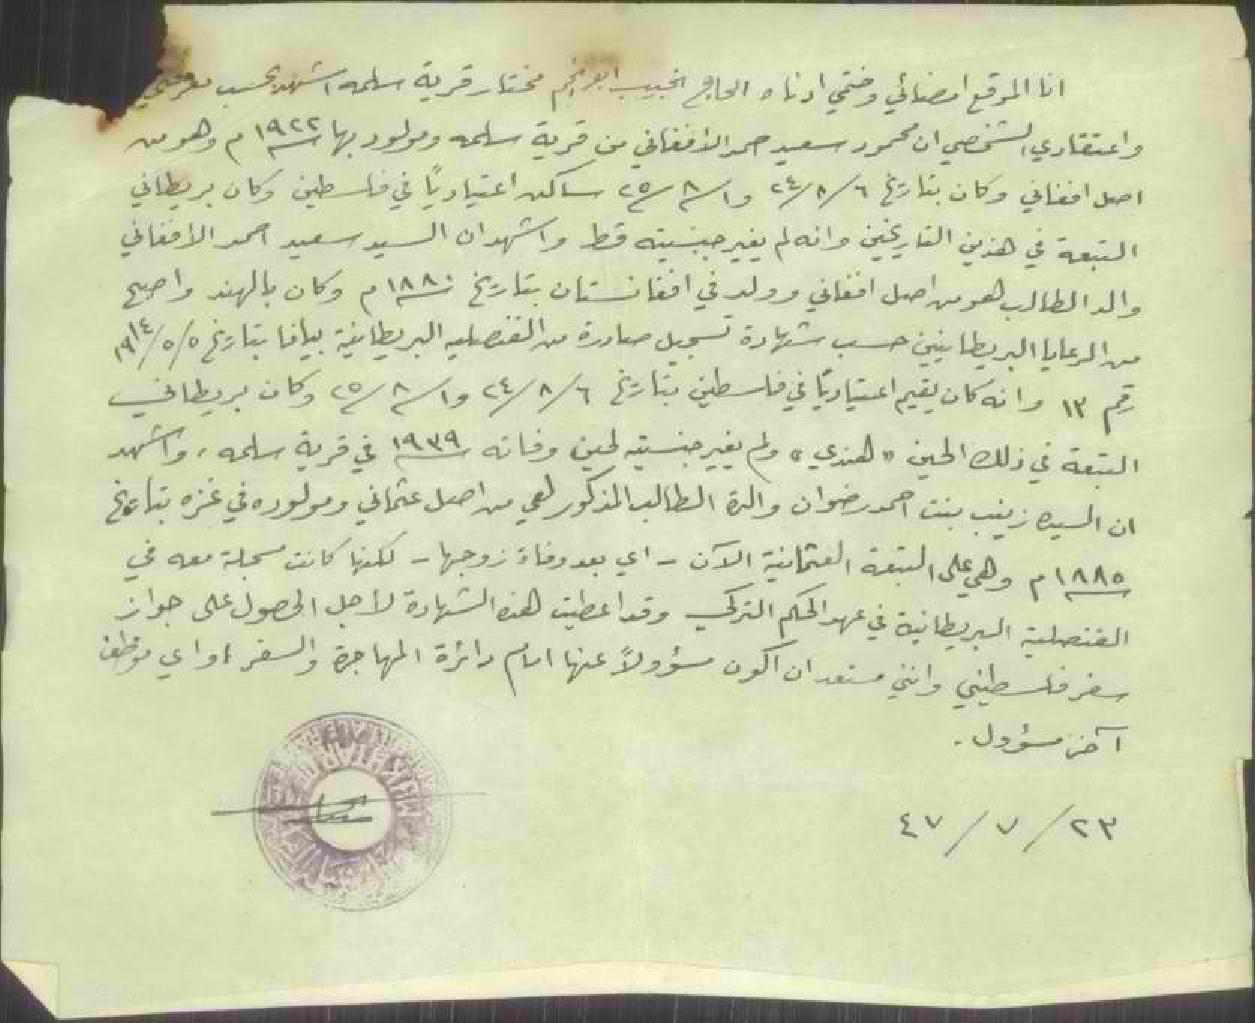 انا الموقع امضائي وختمي ادناه الحاج نجيب ابو نجم مختار قرية سلمه اشهد بحسب معرفتي
واعتقادي الشخصي ان محمود سعيد احمد الافغاني من قرية سلمه ومولود بها سنة ١٩٢٢ م وهو من
اصل افغاني وكان بتاريخ ٢٤/٨/٦ و٢٥/٨/١ ساكن اعتيادياً في فلسطين وكان بريطاني
التبعة في هذين التاريخين وانه لم يغير جنسيته قط واشهد ان السيد سعيد احمد الافغاني
والد الطالب هو من اصل افغاني وولد في افغانستان بتاريخ ١٨٨٠ م وكان بالهند واصبح
من الرعايا البريطانيين حسب شهادة تسجيل صادرة من القنصليه البريطانية بيافا بتاريخ ١٩١٤/٥/٥
رقم ١٣ وانه كان يقيم اعتيادياً في فلسطين بتاريخ ٢٤/٨/٦ و٢٥/٨/١ وكان بريطاني
التبعة في ذلك الحين "هندي" ولم يغير جنسيته لحين وفاته سنة ١٩٣٩ في قرية سلمه، واشهد
ان السيده زينب بنت احمد رضوان والدة الطالب المذكور هي من اصل عثماني ومولوده في غزه بتاريخ
سنة ١٨٨٥ م وهي على التبعة العثمانية الآن - اي بعد وفاة زوجها - لكنها كانت مسجلة معه في
القنصلية البريطانية في عهد الحكم التركي وقد اعطيت هذه الشهادة لأجل الحصول على جواز
سفر فلسطيني وانني مستعد ان اكون مسؤولاً عنها امام دائرة المهاجرة والسفر او اي موظف
آخر مسؤول.
٢٣/٧/٤٧